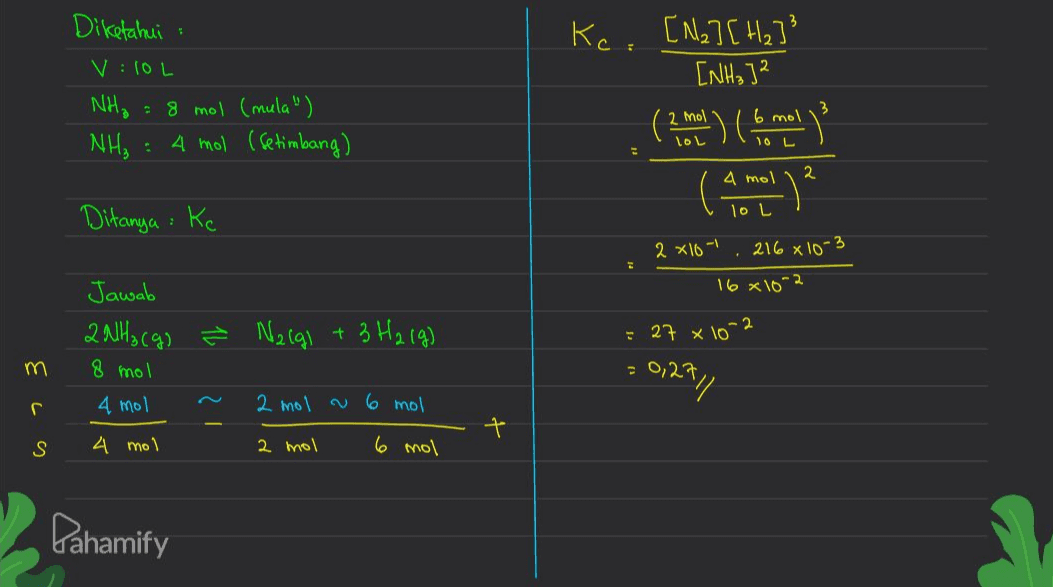 Diketahui :
V : 10 L
NH₃ = 8 mol (mula")
NH₃ : 4 mol (Setimbang)
Ditanya : Kc
Jawab
2NH₃(g) ⇌ N₂(g) + 3H₂(g)
m 8 mol
r 4 mol ~ 2 mol ~ 6 mol
− +
s 4 mol 2 mol 6 mol
Kc = [N₂][H₂]³
[NH₃]²
= (2 mol / 10L) (6 mol / 10 L)³
(4 mol / 10 L)²
= 2 x10⁻¹ . 216 x10⁻³
16 x10⁻²
= 27 x 10⁻²
= 0,27//
Pahamify